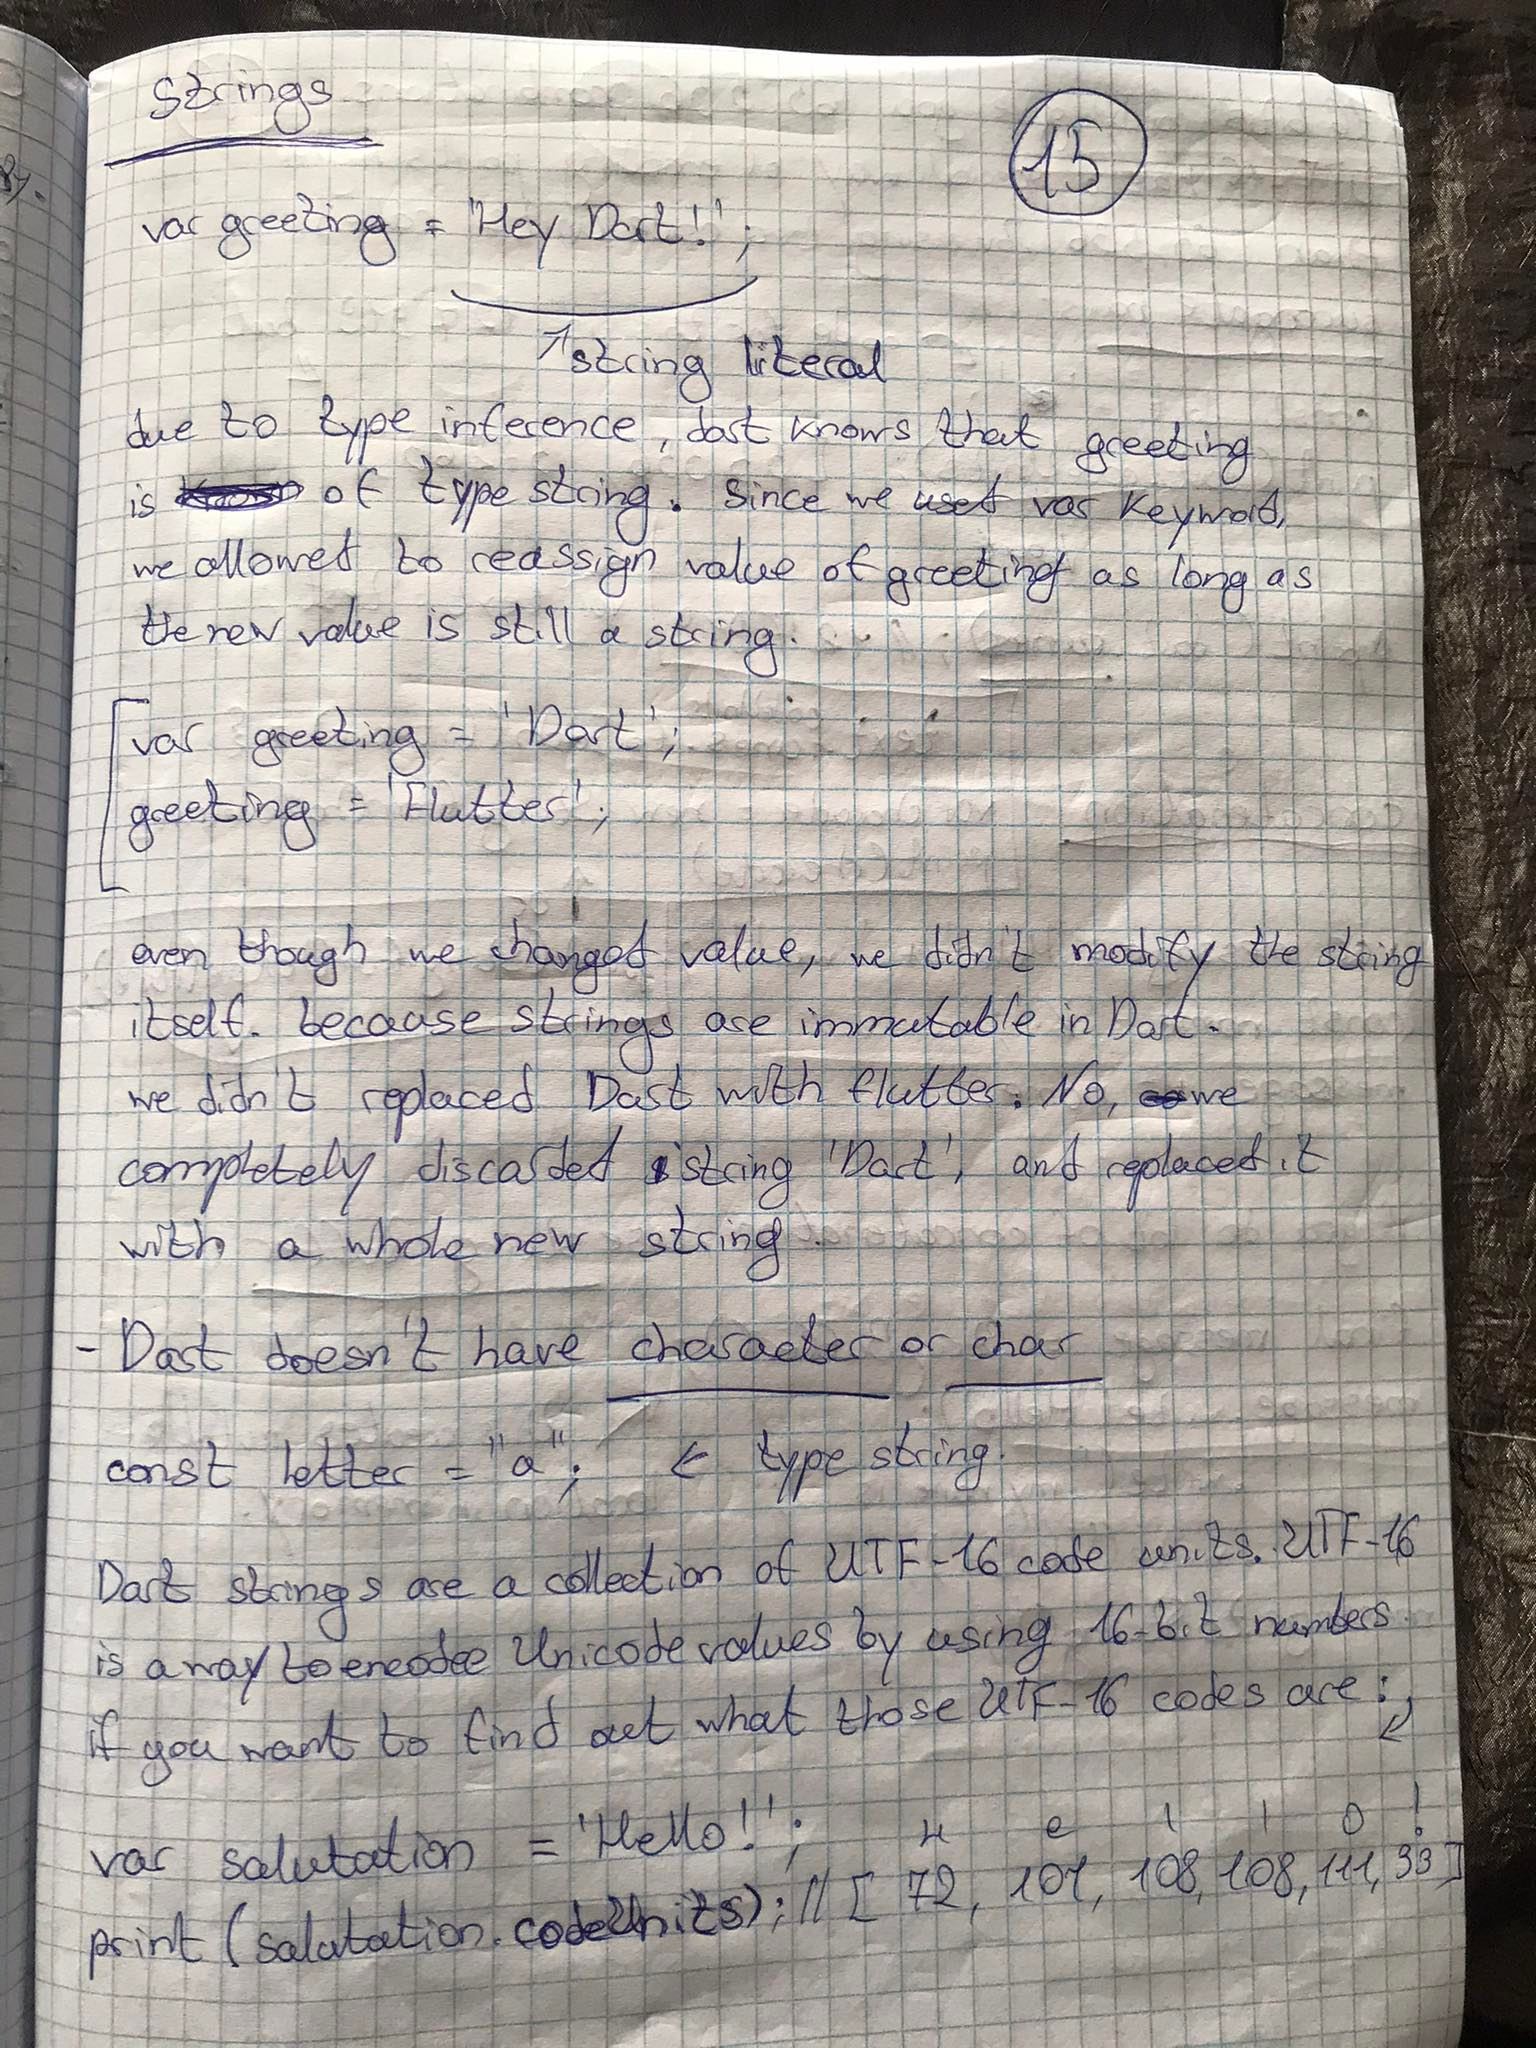 Strings
15
var greeting = 'Hey Dart!';
string literal
due to type inference, dart knows that greeting
is of type string. Since we used var keyword,
we allowed to reassign value of greeting as long as
the new value is still a string.
var greeting = 'Dart';
greeting = 'Flutter';
even though we changed value, we didn't modify the string
itself. because strings are immutable in Dart.
we didn't replaced Dart with flutter. No, we
completely discarded string 'Dart', and replaced it
with a whole new string.
- Dart doesn't have character or char
const letter = "a"; ← type string.
Dart strings are a collection of UTF-16 code units. UTF-16
is a way to encodee Unicode values by using 16-bit numbers.
if you want to find out what those UTF-16 codes are:
var salutation = 'Hello!'; H e l l o !
print(salutation.codeUnits); // [72, 101, 108, 108, 111, 33]